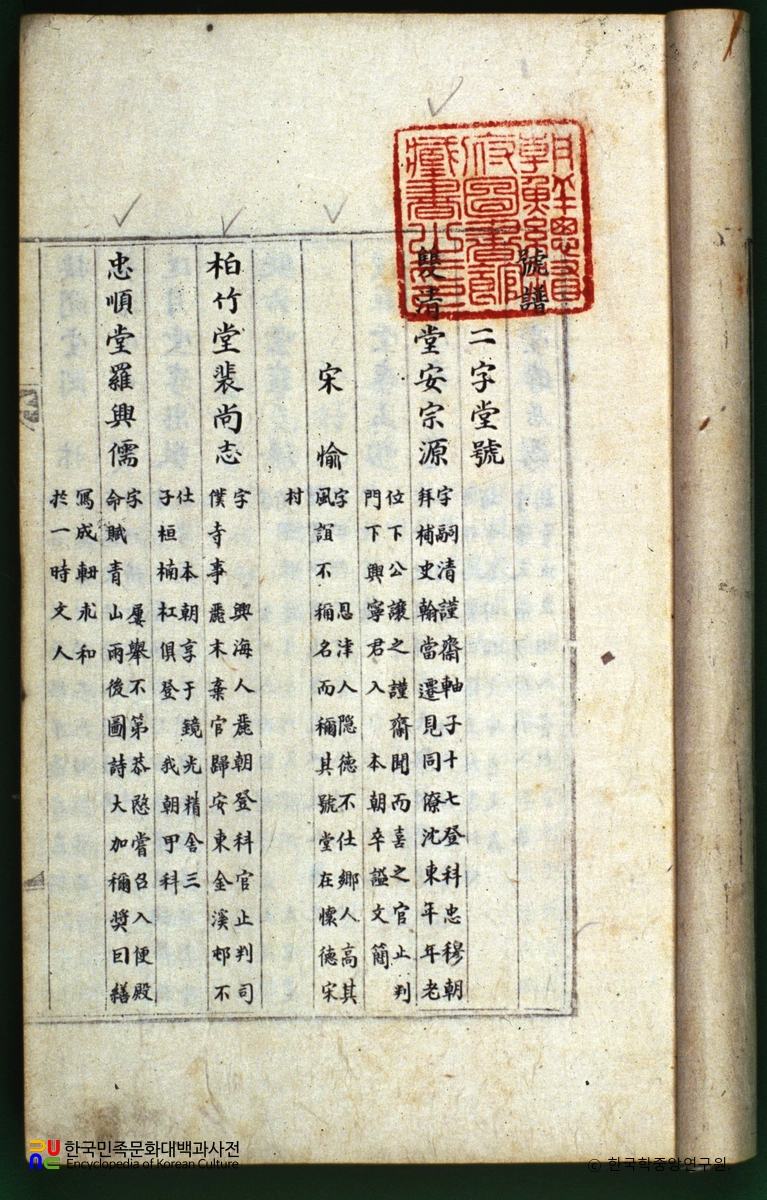 朝鮮總督
府圖書館
藏書之印
號譜
二字堂號
雙清堂安宗源
字嗣清謹齋軸子十七登科忠穆朝
拜補史翰當遷見同僚沈東年年老
位下公讓之謹齋聞而喜之官止判
門下興寧君入 本朝卒謚文簡
宋愉
字 恩津人隐德不仕鄉人高其
風誼不稱名而稱其號堂在懷德宋
村
柏竹堂裴尚志
字 興海人麗朝登科官止判司
僕寺事麗末棄官歸安東金溪邨不
仕 本朝享于鏡光精舍三
子桓楠杠俱登 我朝甲科
忠順堂羅興儒
字 屡舉不第恭愍嘗召入便殿
命賦青山雨後圖詩大加稱奬曰繕
寫成軸求和
於一時文人
한국민족문화대백과사전
Encyclopedia of Korean Culture
© 한국학중앙연구원